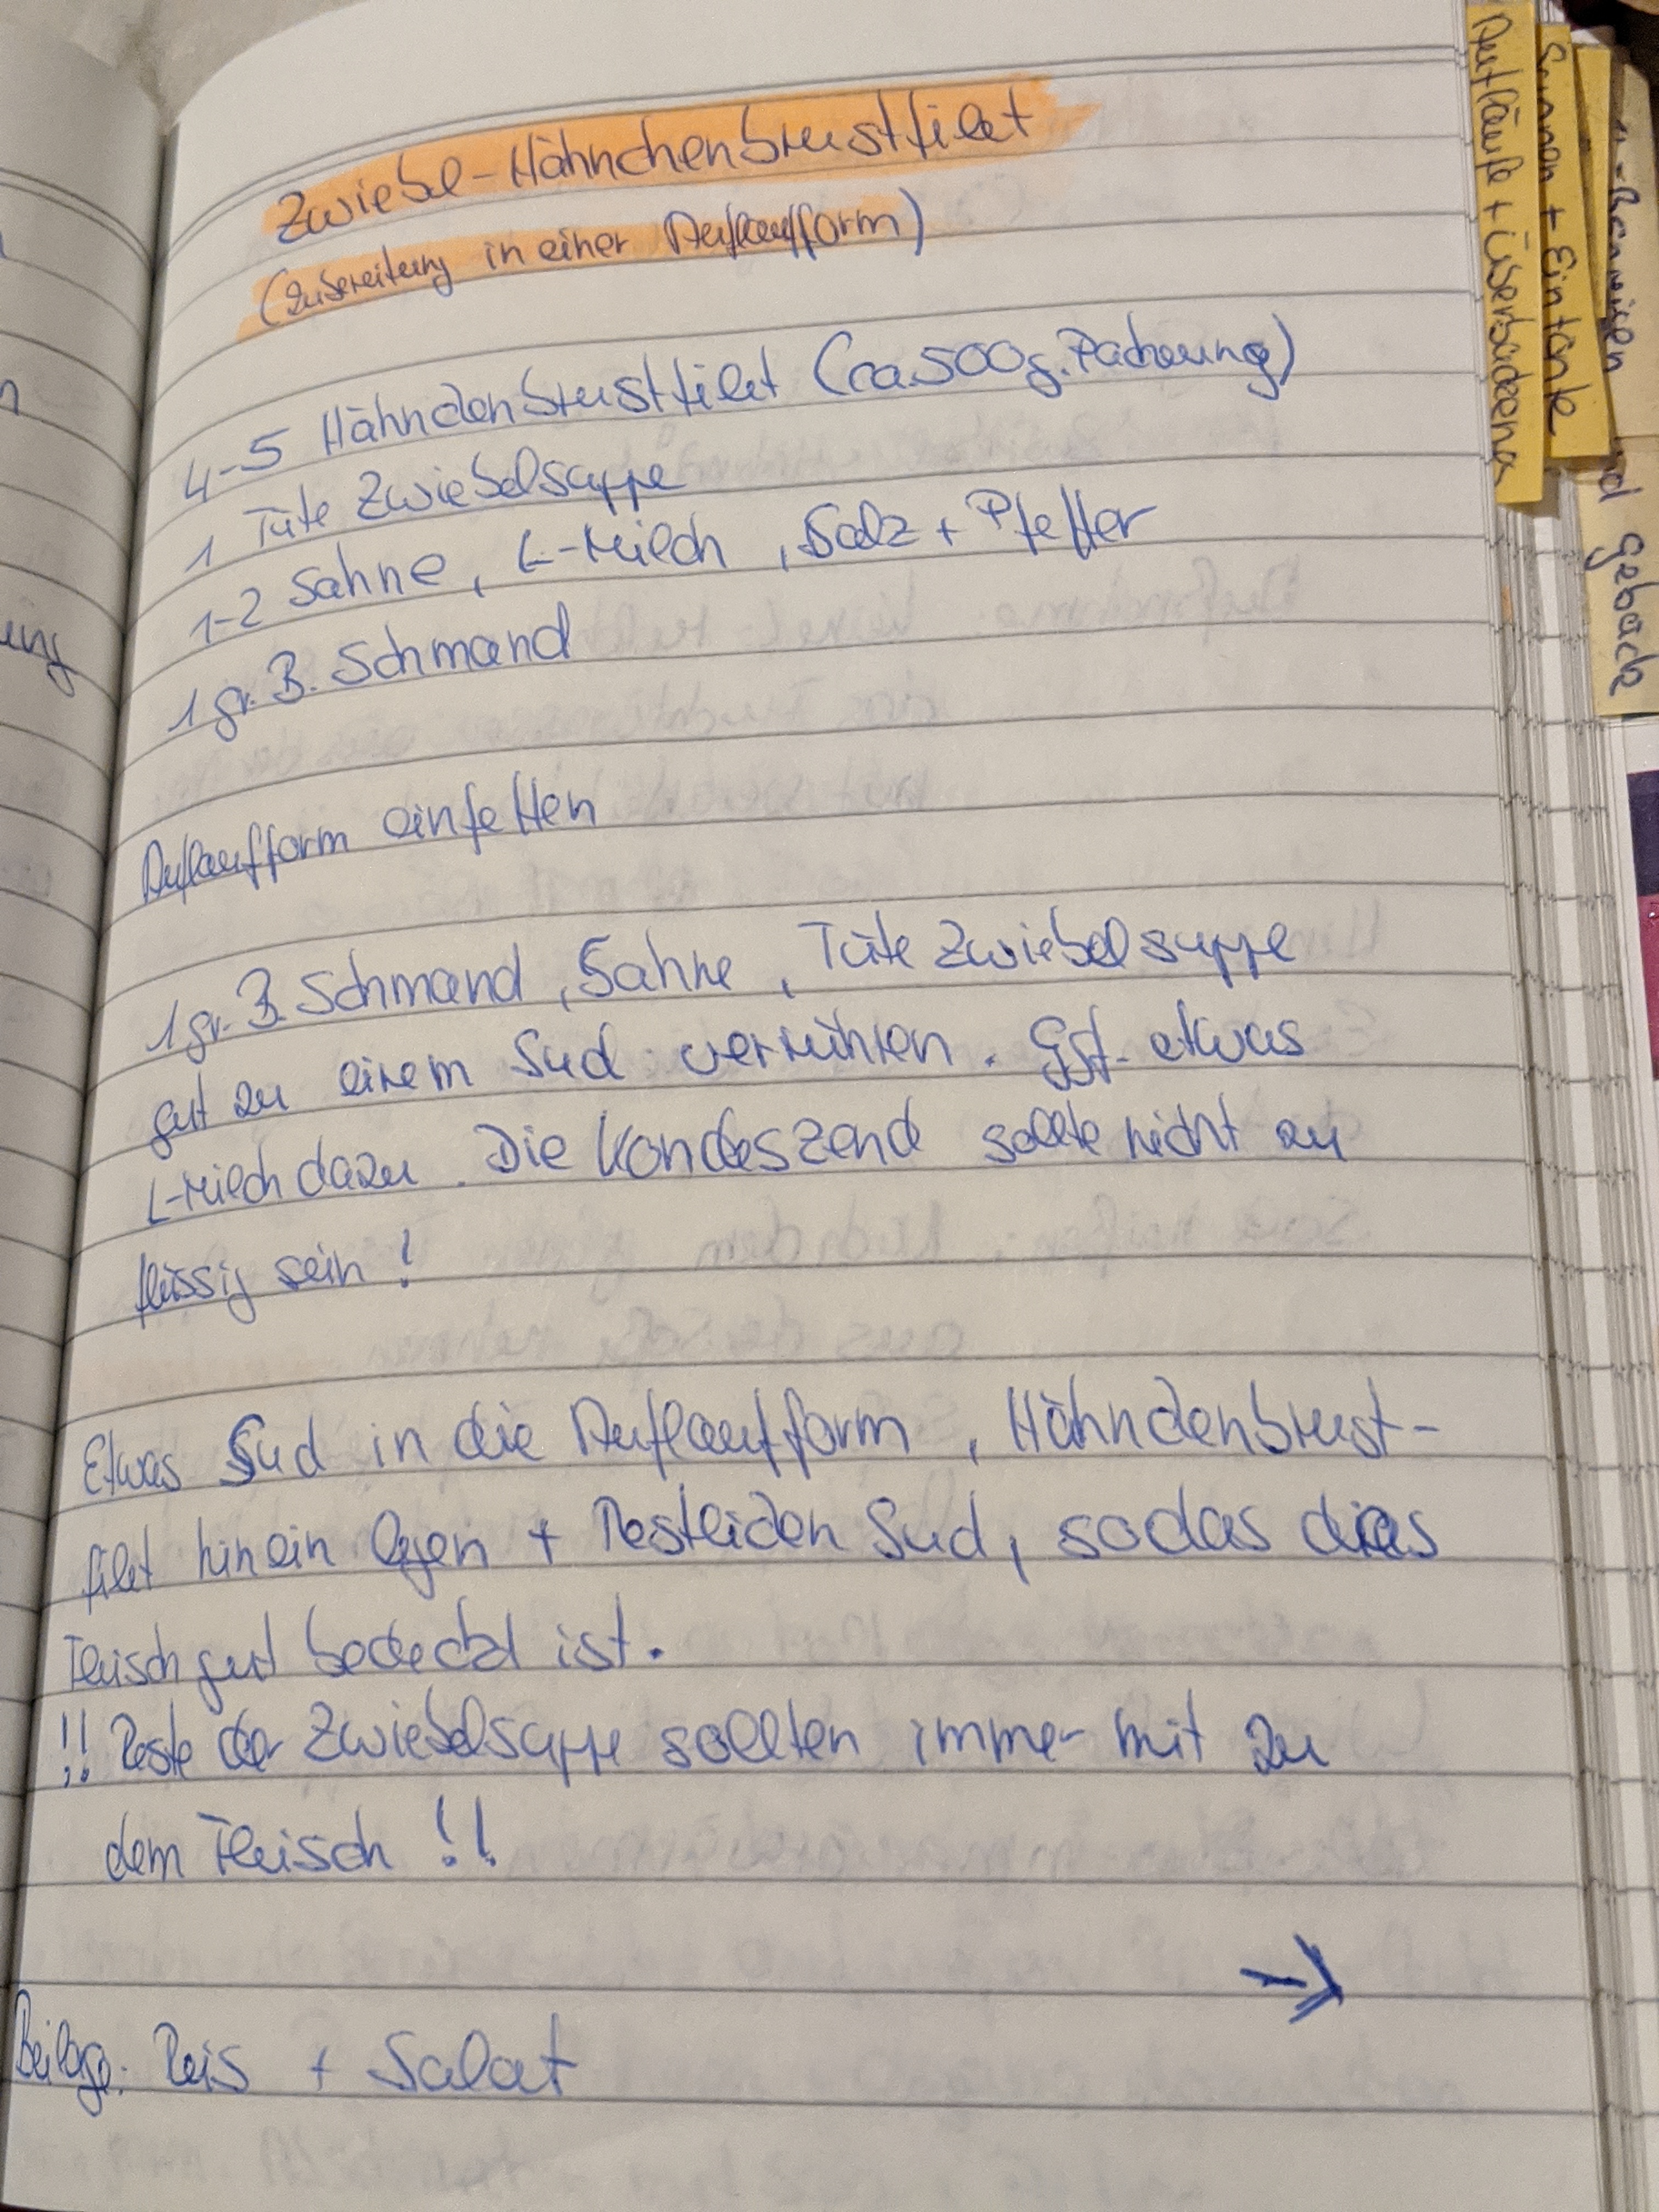 Zwiebel-Hähnchenbrustfilet
(Zubereitung in einer Auflaufform)
4-5 Hähnchenbrustfilet (ca. 500g. Packung)
1 Tüte Zwiebelsuppe
1-2 Sahne, L-Milch, Salz + Pfeffer
1 gr. B. Schmand
Auflaufform einfetten
1 gr. B. Schmand, Sahne, Tüte Zwiebelsuppe
gut zu einem Sud verrühren. Ggf. etwas
L-Milch dazu. Die Kondeszend sollte nicht zu
flüssig sein!
Etwas Sud in die Auflaufform, Hähnchenbrust-
filet hinein legen + Restlichen Sud, sodas das
Fleisch gut bedeckt ist.
!! Reste der Zwiebelsuppe sollten immer mit zu
dem Fleisch !!
→
Beilage: Reis + Salat
Aufläufe + Überbackenes
Suppen + Eintöpfe
Gebäck
ung